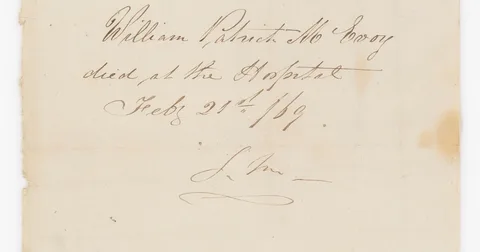 William Patrick McEvoy
died at the Hospital
Feby 21st /69
J. M—